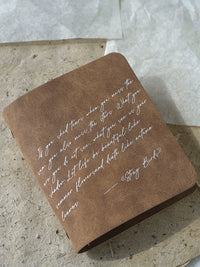 If you shed tears when you miss the
sun, you also miss the stars. What you
are you do not see, what you see is your
shadow. Let life be beautiful like
summer flowers and death like autumn
leaves.
—— <Stray Birds>